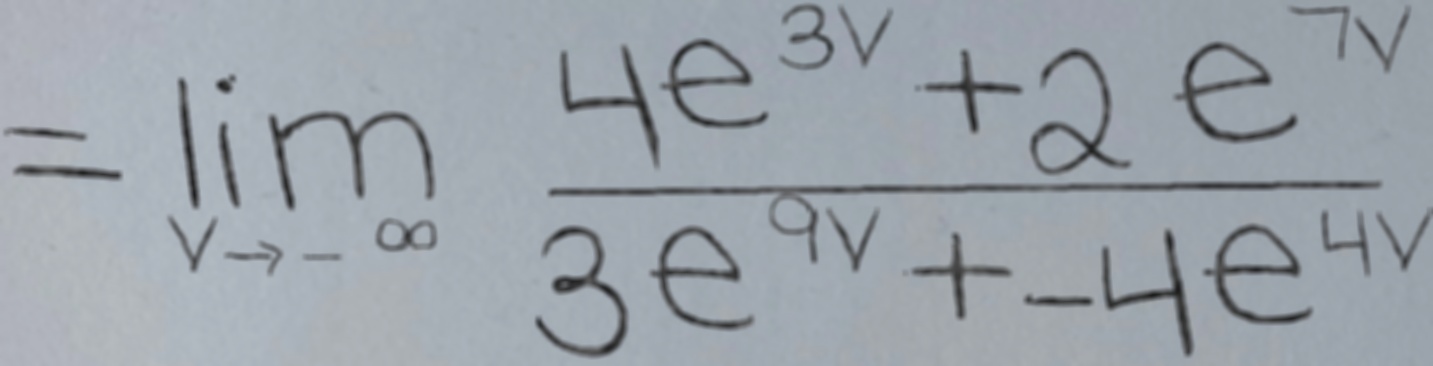 = \lim_{v \to -\infty} \frac{4e^{3v} + 2e^{7v}}{3e^{9v} + -4e^{4v}}